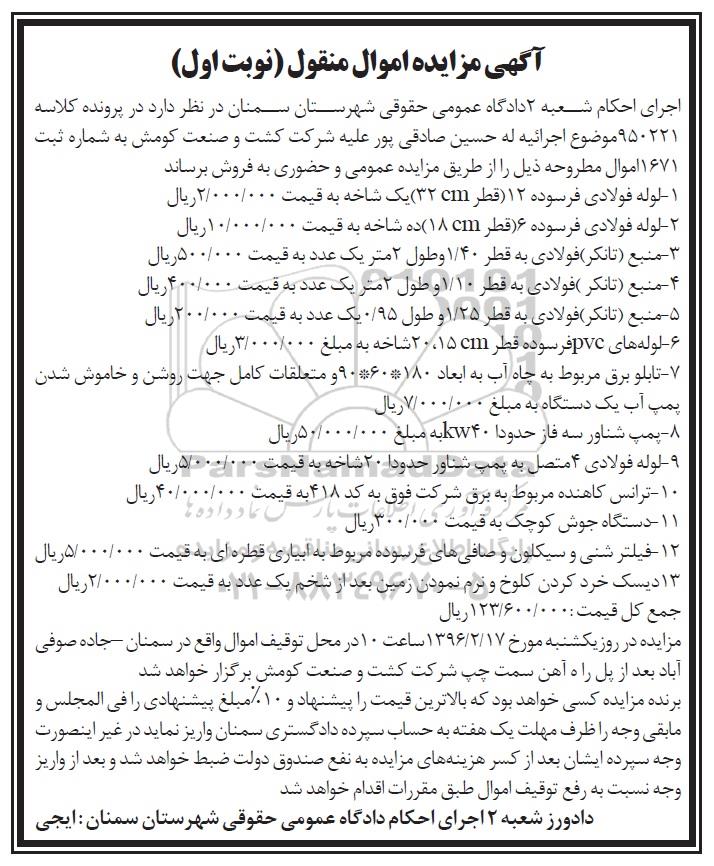 آگهی مزایده اموال منقول (نوبت اول)
اجرای احکام شعبه ۲دادگاه عمومی حقوقی شهرستان سمنان در نظر دارد در پرونده کلاسه
۹۵۰۲۲۱موضوع اجرائیه له حسین صادقی پور علیه شرکت کشت و صنعت کومش به شماره ثبت
۱۶۷۱اموال مطروحه ذیل را از طریق مزایده عمومی و حضوری به فروش برساند
۱-لوله فولادی فرسوده ۱۲(قطر ۳۲ cm)یک شاخه به قیمت ۲/۰۰۰/۰۰۰ریال
۲-لوله فولادی فرسوده ۶(قطر ۱۸ cm)ده شاخه به قیمت ۱۰/۰۰۰/۰۰۰ریال
۳-منبع (تانکر)فولادی به قطر ۱/۴۰وطول ۲متر یک عدد به قیمت ۵۰۰/۰۰۰ریال
۴-منبع (تانکر )فولادی به قطر ۱/۱۰و طول ۲متر یک عدد به قیمت ۴۰۰/۰۰۰ریال
۵-منبع (تانکر)فولادی به قطر ۱/۲۵و طول ۰/۹۵یک عدد به قیمت ۲۰۰/۰۰۰ریال
۶-لوله‌های pvcفرسوده قطر ۲۰،۱۵ cmشاخه به مبلغ ۳/۰۰۰/۰۰۰ریال
۷-تابلو برق مربوط به چاه آب به ابعاد ۱۸۰*۶۰*۹۰و متعلقات کامل جهت روشن و خاموش شدن
پمپ آب یک دستگاه به مبلغ ۷/۰۰۰/۰۰۰ریال
۸-پمپ شناور سه فاز حدودا ۴۰kwبه مبلغ ۵۰/۰۰۰/۰۰۰ریال
۹-لوله فولادی ۴متصل به پمپ شناور حدودا ۲۰شاخه به قیمت ۵/۰۰۰/۰۰۰ریال
۱۰-ترانس کاهنده مربوط به برق شرکت فوق به کد ۴۱۸به قیمت ۴۰/۰۰۰/۰۰۰ریال
۱۱-دستگاه جوش کوچک به قیمت ۳۰۰/۰۰۰ریال
۱۲-فیلتر شنی و سیکلون و صافی‌های فرسوده مربوط به ابیاری قطره ای به قیمت ۵/۰۰۰/۰۰۰ریال
۱۳دیسک خرد کردن کلوخ و نرم نمودن زمین بعد از شخم یک عدد به قیمت ۲/۰۰۰/۰۰۰ریال
جمع کل قیمت :۱۲۳/۶۰۰/۰۰۰ریال
مزایده در روز یکشنبه مورخ ۱۳۹۶/۲/۱۷ساعت ۱۰در محل توقیف اموال واقع در سمنان –جاده صوفی
آباد بعد از پل راه آهن سمت چپ شرکت کشت و صنعت کومش برگزار خواهد شد
برنده مزایده کسی خواهد بود که بالاترین قیمت را پیشنهاد و ۱۰٪مبلغ پیشنهادی را فی المجلس و
مابقی وجه را ظرف مهلت یک هفته به حساب سپرده دادگستری سمنان واریز نماید در غیر اینصورت
وجه سپرده ایشان بعد از کسر هزینه‌های مزایده به نفع صندوق دولت ضبط خواهد شد و بعد از واریز
وجه نسبت به رفع توقیف اموال طبق مقررات اقدام خواهد شد
دادورز شعبه ۲ اجرای احکام دادگاه عمومی حقوقی شهرستان سمنان : ایجی
ParsNamadData
۰۲۱-۸۸۳۴۹۶۷۰-۵